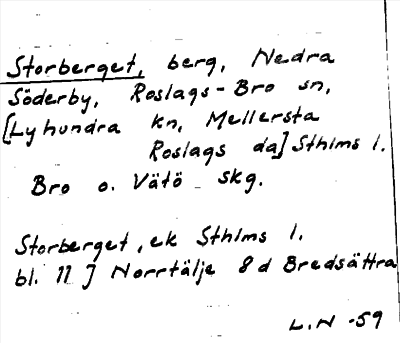 Storberget, berg, Nedra
Söderby, Roslags-Bro sn,
[Lyhundra kn, Mellersta
Roslags da] Sthlms l.
Bro o. Vätö skg.
Storberget, ek Sthlms l.
bl. 11 J Norrtälje 8d Bredsättra
L.N -59